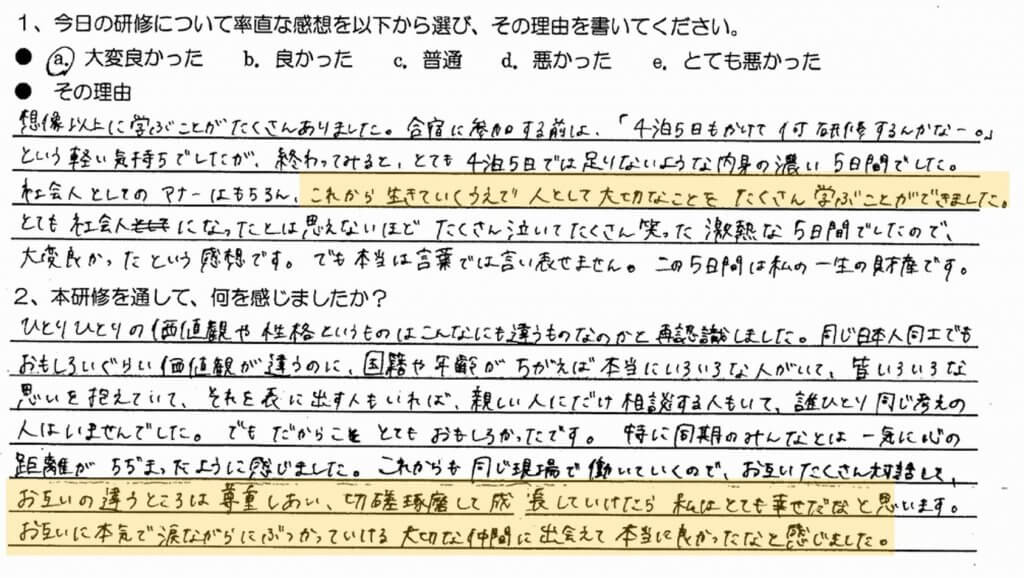 1、今日の研修について率直な感想を以下から選び、その理由を書いてください。
● a. 大変良かった b. 良かった c. 普通 d. 悪かった e. とても悪かった
● その理由
想像以上に学ぶことがたくさんありました。合宿に参加する前は、「4泊5日もかけて何研修するんかなー。」
という軽い気持ちでしたが、終わってみると、とても4泊5日では足りないような内身の濃い5日間でしたで。
社会人としてのマナーはもちろん、これから生きていくうえで人として大切なことをたくさん学ぶことができました。
とても社会人になったとは思えないほどたくさん泣いてたくさん笑った激熱な5日間でしたので、
大変良かったという感想です。でも本当は言葉では言い表せません。この5日間は私の一生の財産です。
2、本研修を通して、何を感じましたか？
ひとりひとりの価値観や性格というものはこんなにも違うものなのかと再認識しました。同じ日本人同士でも
おもしろいぐらい価値観が違うのに、国籍や年齢がちがえば本当にいろいろな人がいて、皆いろいろな
思いを抱えていて、それを表に出す人もいれば、親しい人にだけ相談する人もいて、誰ひとり同じ考えの
人はいませんでした。でもだからこそとてもおもしろかったです。特に同期のみんなとは一気に心の
距離がちぢまったように感じました。これからも同じ現場で働いていくので、お互いたくさん対話して、
お互いの違うところは尊重しあい、切磋琢磨して成長していけたら私はとても幸せだなと思います。
お互いに本気で涙ながらにぶつかっていける大切な仲間に出会えて本当に良かったなと感じました。